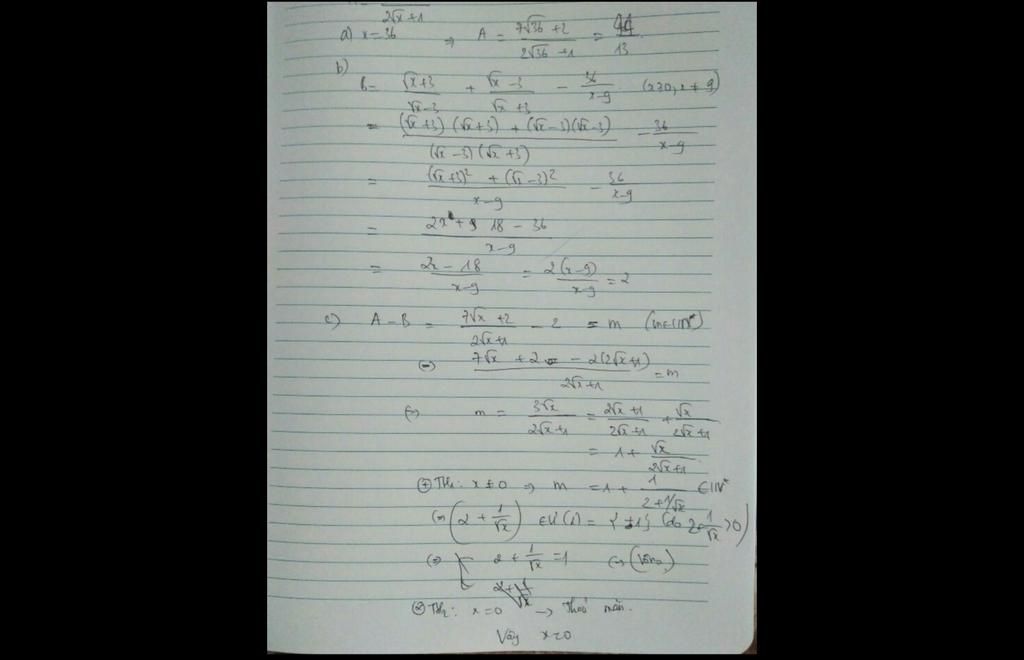 2√x+1
a) x=36 ⇒ A = (7√36 +2)/(2√36 +1) = 44/13
b)
B= (√x+3)/(√x-3) + (√x-3)/(√x+3) - 36/(x-9) (x≥0, x≠9)
= ((√x+3)(√x+3) + (√x-3)(√x-3))/((√x-3)(√x+3)) - 36/(x-9)
= ((√x+3)² + (√x-3)²)/(x-9) - 36/(x-9)
= (2x + 18 - 36)/(x-9)
= (2x - 18)/(x-9) = 2(x-9)/(x-9) = 2
c) A - B = (7√x +2)/(2√x+1) - 2 = m (m∈ℕ*)
⇔ (7√x + 2 - 2(2√x+1))/(2√x+1) = m
⇔ m = 3√x/(2√x+1) = (2√x+1)/(2√x+1) + √x/(2√x+1)
= 1 + √x/(2√x+1)
⊕ TH1: x≠0 ⇒ m = 1 + 1/(2+1/√x) ∈ℕ*
⇔ (2 + 1/√x) ∈Ư(1) = {±1} (do 2+1/√x >0)
⇔ [ 2 + 1/√x =1 ⇔ (Vô no)
⊕ TH2: x=0 → Thoả mãn.
Vậy x=0